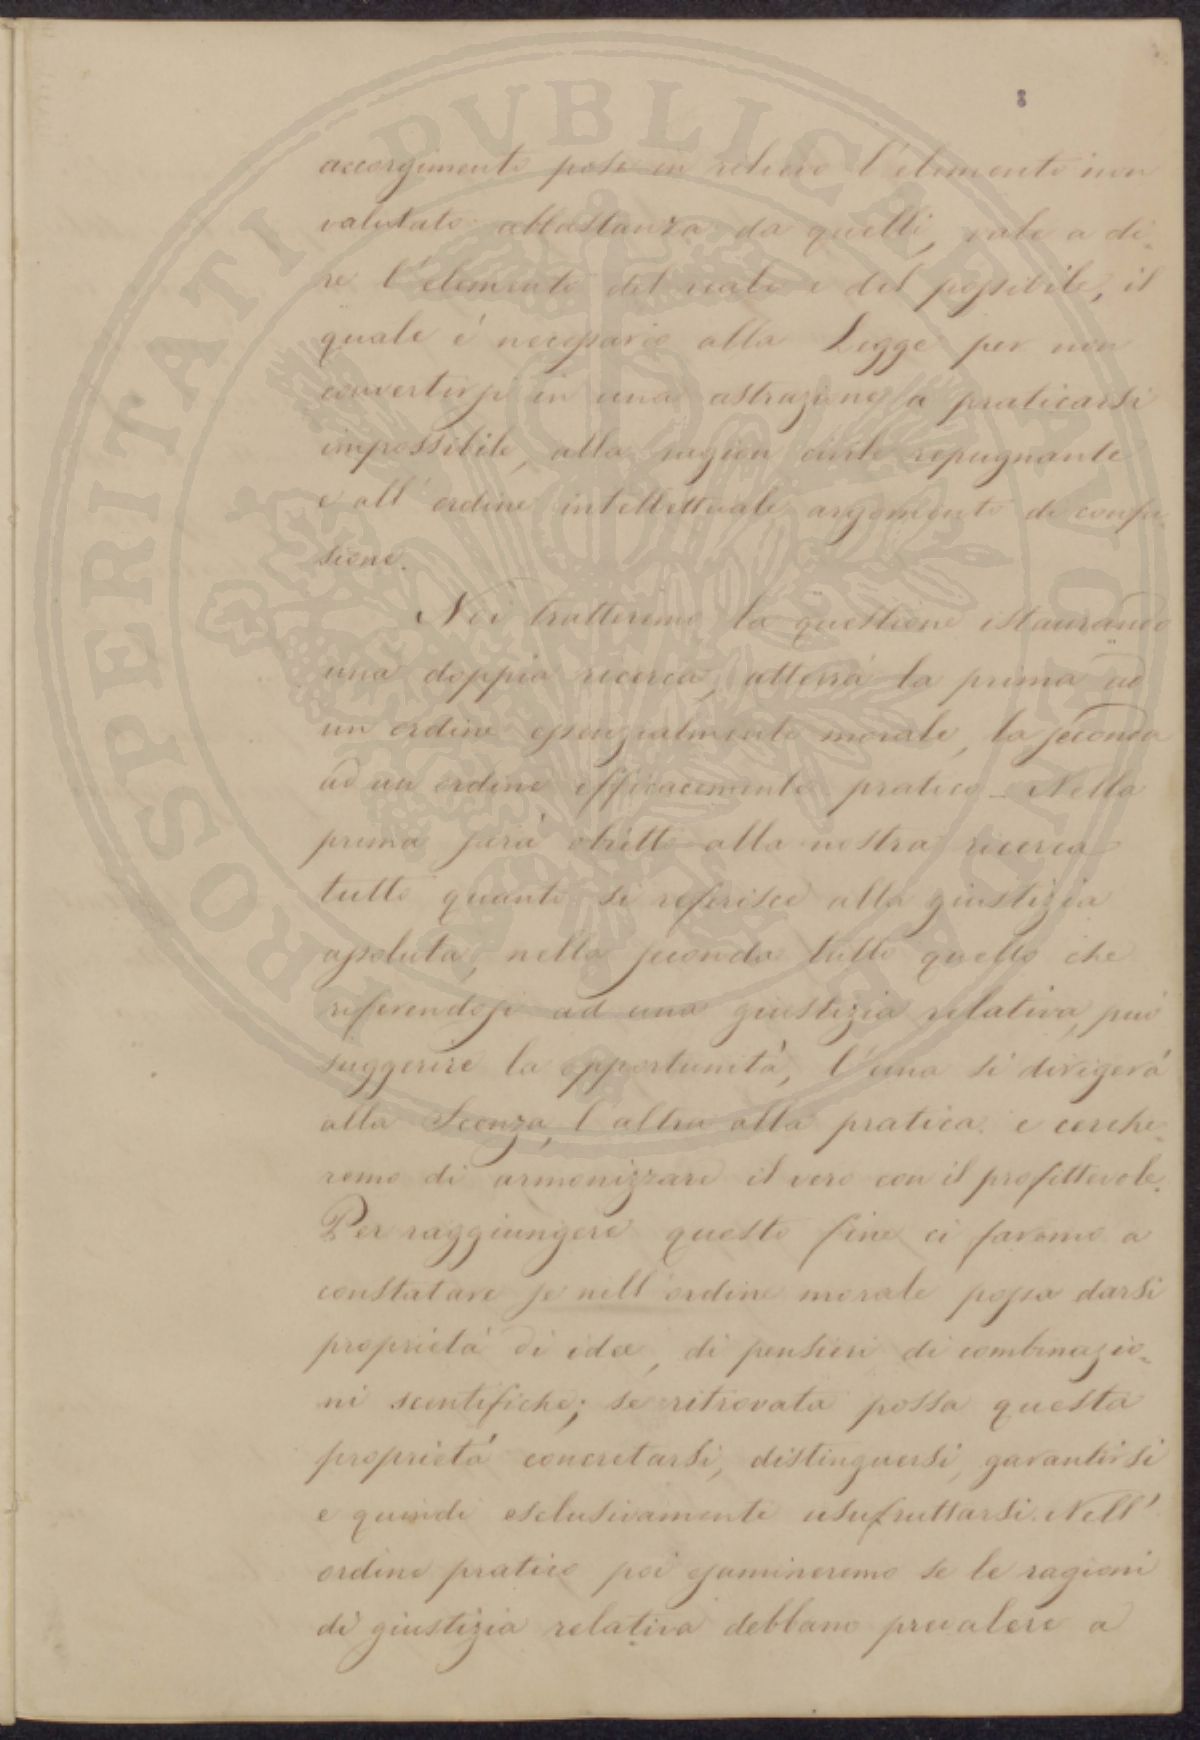 8
accorgimento pose in relievo l'elemento non
valutato abbastanza da quelli, vale a di-
re l'elemento del reale e del possibile, il
quale é necessario alla Legge per non
convertirsi in una astrazione a praticarsi
impossibile, alla ragion civile repugnante
e all'ordine intellettuale argomento di confu-
sione.
Noi tratteremo la questione istaurando
una doppia ricerca, atterrà la prima ad
un ordine essenzialmente morale, la seconda
ad un ordine efficacemente pratico _ Nella
prima sarà obietto alla nostra ricerca
tutto quanto si referisce alla giustizia
assoluta, nella seconda tutto quello che
referendosi ad una giustizia relativa, può
suggerire la opportunità, l'una si dirigerà
alla Scenza, l'altra alla pratica. e cerche-
remo di armonizzare il vero con il profittevole.
Per raggiungere questo fine ci faremo a
constatare se nell'ordine morale possa darsi
proprietá di idee, di pensieri di combinazio-
ni scentifiche; se ritrovata possa questa
proprietá concretarsi, distinguersi, garantirsi
e quindi esclusivamente usufruttarsi. Nell'
ordine pratico poi esamineremo se le ragioni
di giustizia relativa debbano prevalere a
PROSPERITATI PVBLICAE AVGENDAE